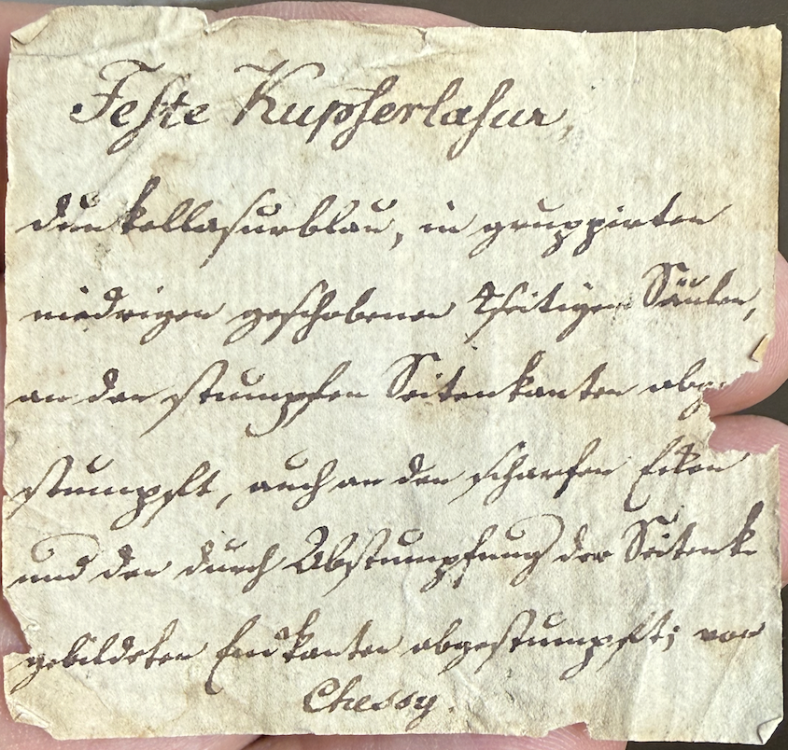 Feste Kupferlasur,
dunkellasurblau, in gruppirten
niedrigen geschobenen 4seitigen Säulen,
an den stumpfen Seitenkanten abge
stumpft, auch an den scharfen Ecken
und den durch Abstumpfung der Seitenk.
gebildeten Endkanten abgestumpft; von
Chessy.